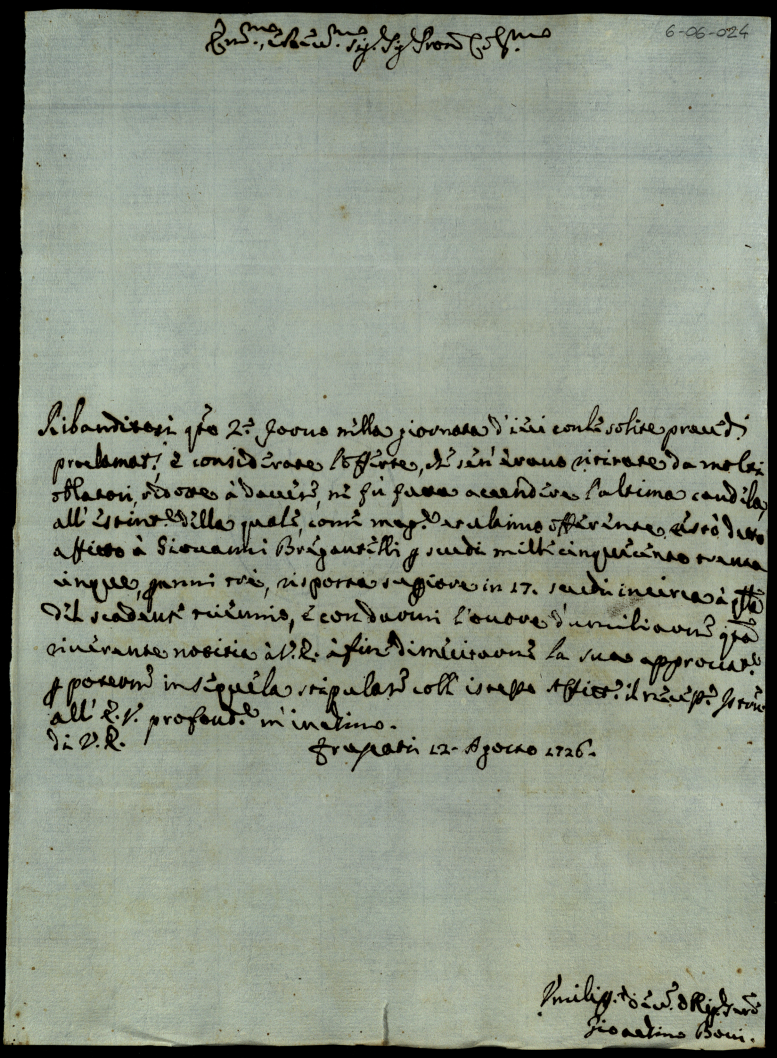 6-06-024
Em.mo, e Rev.mo Sig. Sig. Pron Col.mo
Ribanditosi q.to forno nella giornata d'ieri con le solite preced.i
proclamat.i e considerate l'offerte, che s'erano ritirate da molti
oblatori, ridotte à dovere, ne fù fatta accendere l'ultima candela,
all'estinz.e della quale, come magg.e et ultimo offerente, restò d.to
affitto à Giovanni Bregantelli p scudi mille cinquecento trenta
cinque, p anni trè, risposta magiore in 17. scudi incirca à q.lla
del scadente triennio, e con darmi l'onore d'umiliarne q.ta
riverente notizia à V.E. à fine di meritarne la sua approvat.e
p poterne in sequela stipulare coll' istesso Affitt.e il recep.
all' E.V. profond.e m'inclino.
di V.E.
Frascati 12. Agosto 1726.
Umiliss. Dev. Obblig. Serv.
Gioacchino Boni.